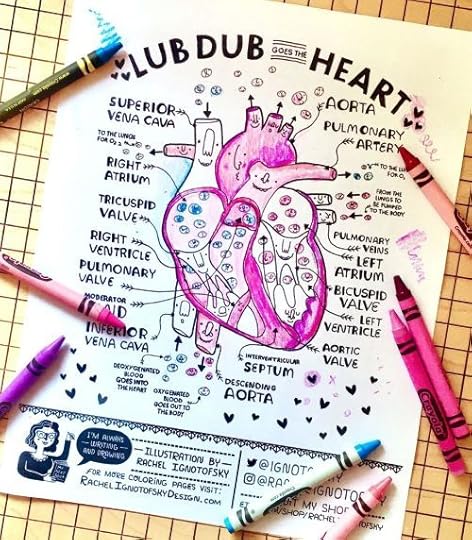 LUB DUB GOES THE HEART
SUPERIOR
VENA CAVA
TO THE LUNGS
FOR O₂
RIGHT
ATRIUM
TRICUSPID
VALVE
RIGHT
VENTRICLE
PULMONARY
VALVE
MODERATOR
INFERIOR
VENA CAVA
DEOXYGENATED
BLOOD
GOES INTO
THE HEART
OXYGENATED
BLOOD
GOES OUT TO
THE BODY
AORTA
PULMONARY
ARTERY
TO THE
FOR O₂
FROM THE
LUNGS TO
BE PUMPED
TO THE BODY
PULMONARY
VEINS
LEFT
ATRIUM
BICUSPID
VALVE
LEFT
VENTRICLE
AORTIC
VALVE
INTERVENTRICULAR
SEPTUM
DESCENDING
AORTA
I'M ALWAYS
WRITING
AND DRAWING
ILLUSTRATION BY
RACHEL IGNOTOFSKY
FOR MORE COLORING PAGES VISIT:
RACHELIGNOTOFSKYDESIGN.COM
@IGNOT
@RA
MY SHOP
Crayola